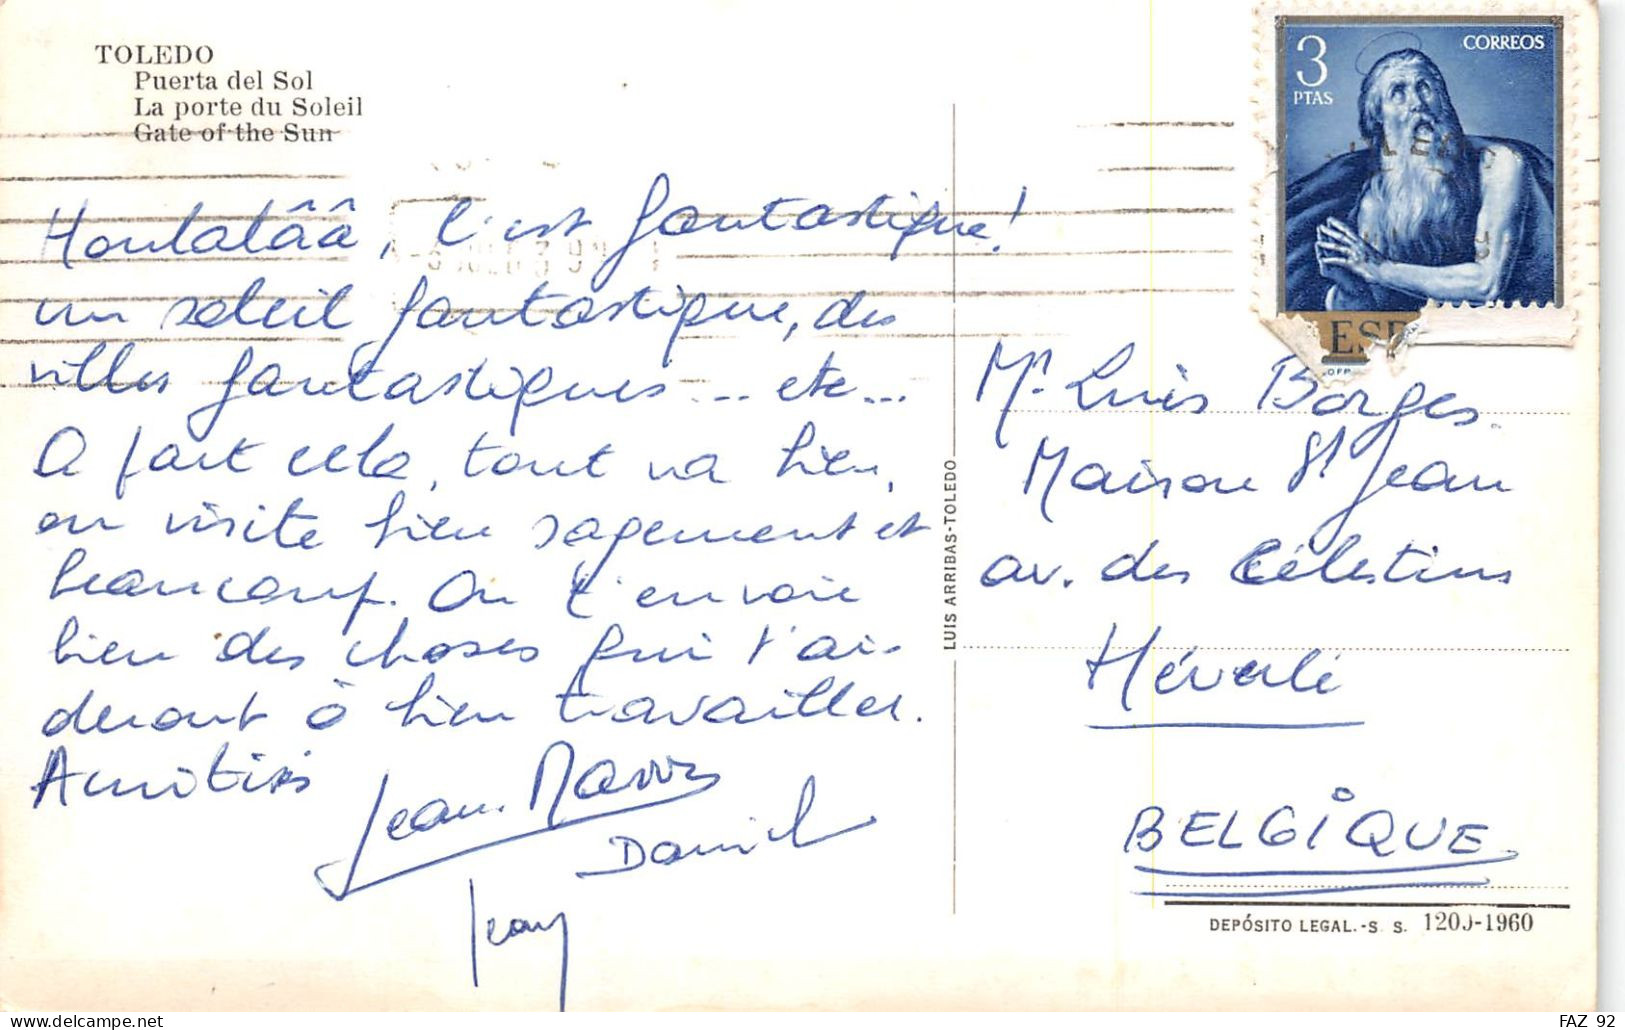 TOLEDO
Puerta del Sol
La porte du Soleil
Gate of the Sun
3
PTAS
CORREOS
Houlalâââ, c'est fantastique!
un soleil fantastique, des
villes fantastiques... etc...
A part cela, tout va bien,
on visite bien sagement et
beaucoup. On t'envoie
bien des choses qui t'ai-
deront à bien travailler.
Amitiés
Jean-Marie
Daniel
Jean
LUIS ARRIBAS-TOLEDO
Mr. Luis Borges.
Maison St Jean
av. des Célestins
Héverlé
BELGIQUE
DEPÓSITO LEGAL.-S. S. 1200-1960
delcampe.net
FAZ 92